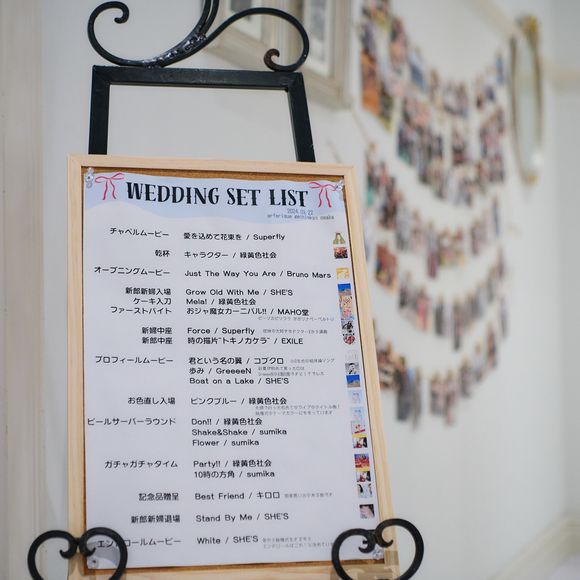 WEDDING SET LIST
チャペルムービー 愛を込めて花束を / Superfly
乾杯 キャラクター / 緑黄色社会
オープニングムービー Just The Way You Are / Bruno Mars
新郎新婦入場 Grow Old With Me / SHE'S
ケーキ入刀 Mela! / 緑黄色社会
ファーストバイト おジャ魔女カーニバル!! / MAHO堂
新婦中座 Force / Superfly
新郎中座 時の描片~トキノカケラ~ / EXILE
プロフィールムービー 君という名の翼 / コブクロ
歩み / GreeeeN
Boat on a Lake / SHE'S
お色直し入場 ピンクブルー / 緑黄色社会
ビールサーバーラウンド Don!! / 緑黄色社会
Shake&Shake / sumika
Flower / sumika
ガチャガチャタイム Party!! / 緑黄色社会
10時の方角 / sumika
記念品贈呈 Best Friend / キロロ
新郎新婦退場 Stand By Me / SHE'S
エンドロールムービー White / SHE'S